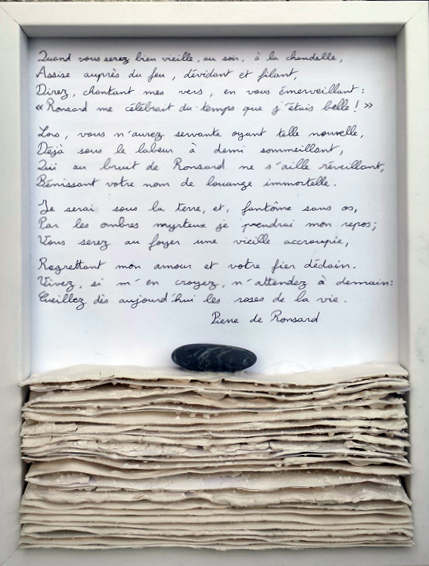 Quand vous serez bien vieille, au soir, à la chandelle,
Assise auprès du feu, dévidant et filant,
Direz, chantant mes vers, en vous émerveillant :
« Ronsard me célébrait du temps que j'étais belle ! »
Lors, vous n'aurez servante oyant telle nouvelle,
Déjà sous le labeur à demi sommeillant,
Qui au bruit de Ronsard ne s'aille réveillant,
Bénissant votre nom de louange immortelle.
Je serai sous la terre, et, fantôme sans os,
Par les ombres myrteux je prendrai mon repos ;
Vous serez au foyer une vieille accroupie,
Regrettant mon amour et votre fier dédain.
Vivez, si m'en croyez, n'attendez à demain :
Cueillez dès aujourd'hui les roses de la vie.
Pierre de Ronsard